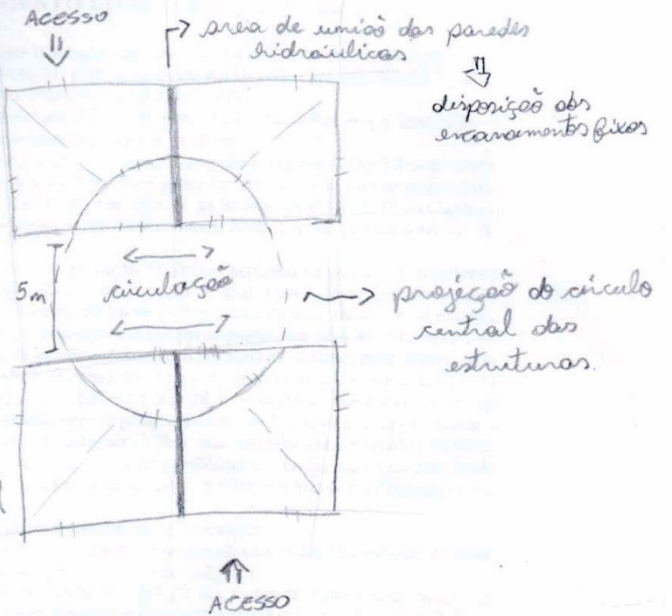 ACESSO
área de união das paredes
hidráulicas
disposição dos
encanamentos fixos
5m
circulação
projeção do círculo
central das
estruturas.
ACESSO